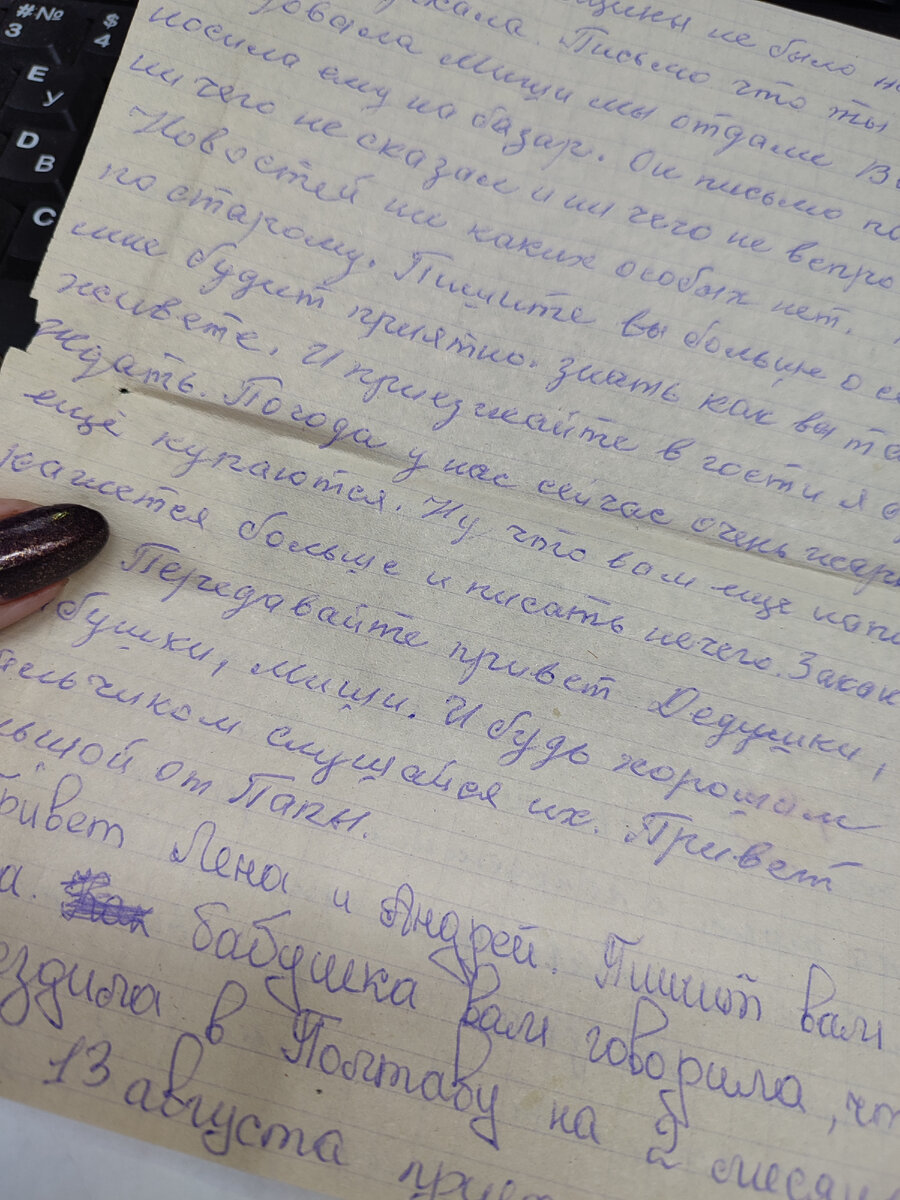 #№ $
3 4
Е
У
D
В
C
не было
Письмо что ты
Миши мы отдали
носила ему на базар. Он письмо
ни чего не сказал и ни чего не вспро
Новостей ни каких особых нет.
по старому. Пишите вы больше о
мне будит приятно. знать как вы
живете. И приезжайте в гости я
ждать. Погода у нас сейчас очень
ещё купаются. Ну что вам еще
кажется больше и писать нечего. Закан
Передавайте привет Дедушки,
бушки, Миши. И будь хорошим
альчиком слушайся их. Привет
льшой от Папы.
ривет Лена и Андрей. Пишит вам
а. бабушка вам говорила, чт
ездила в Полтаву на 2 месяц
13 августа